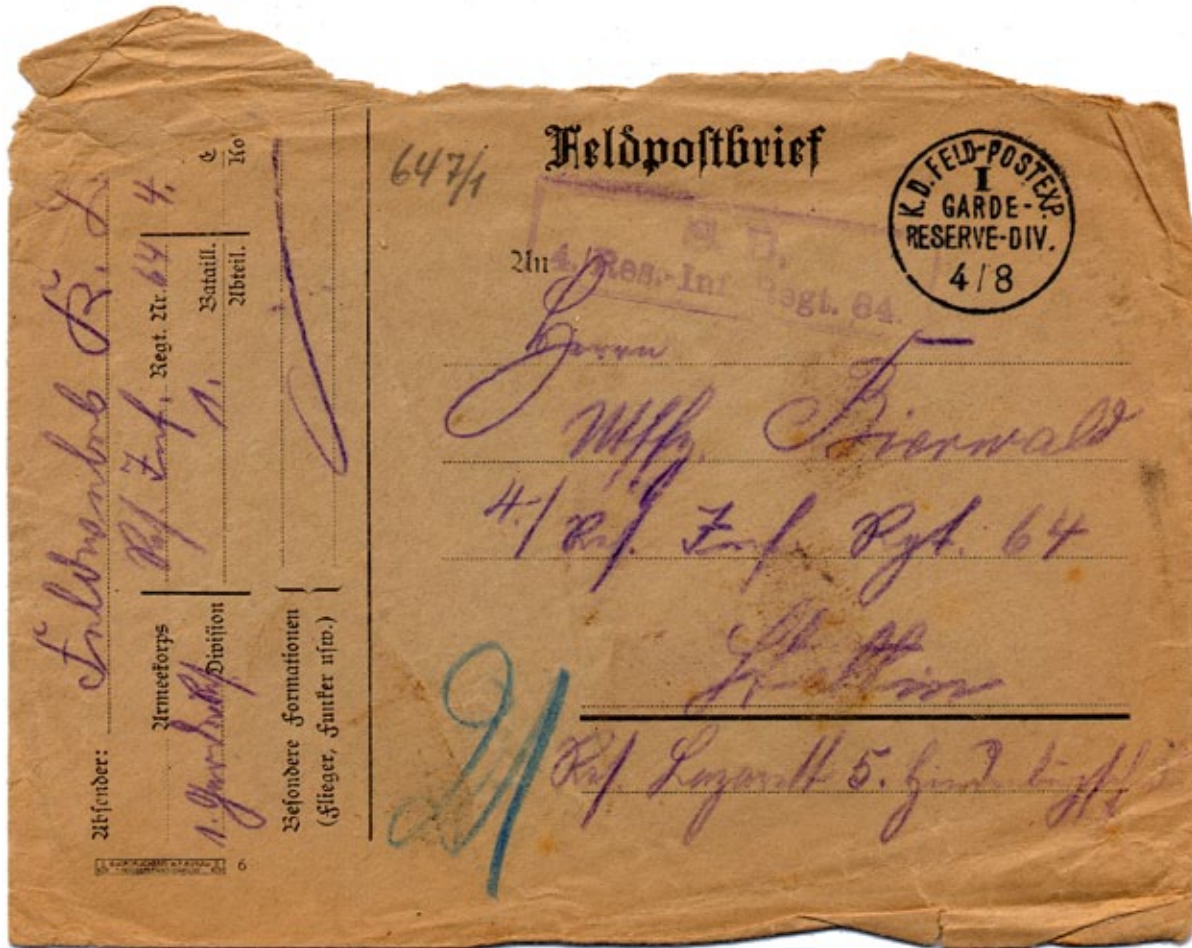 Feldpostbrief
K. D. FELD-POSTEXP.
I
GARDE-
RESERVE-DIV.
4/8
647/1
S. B.
4./Res.-Inf. Regt. 64.
An
Herrn
Uffz. Bierwald
4./Res. Inf. Rgt. 64
Stettin
Res. Lazarett 5.
Absender:
Armeekorps
1. Garde Res. Division
Res. Inf. Regt. Nr. 64 4.
1. Bataill.
Abteil.
Besondere Formationen
(Flieger, Funker usw.)
6